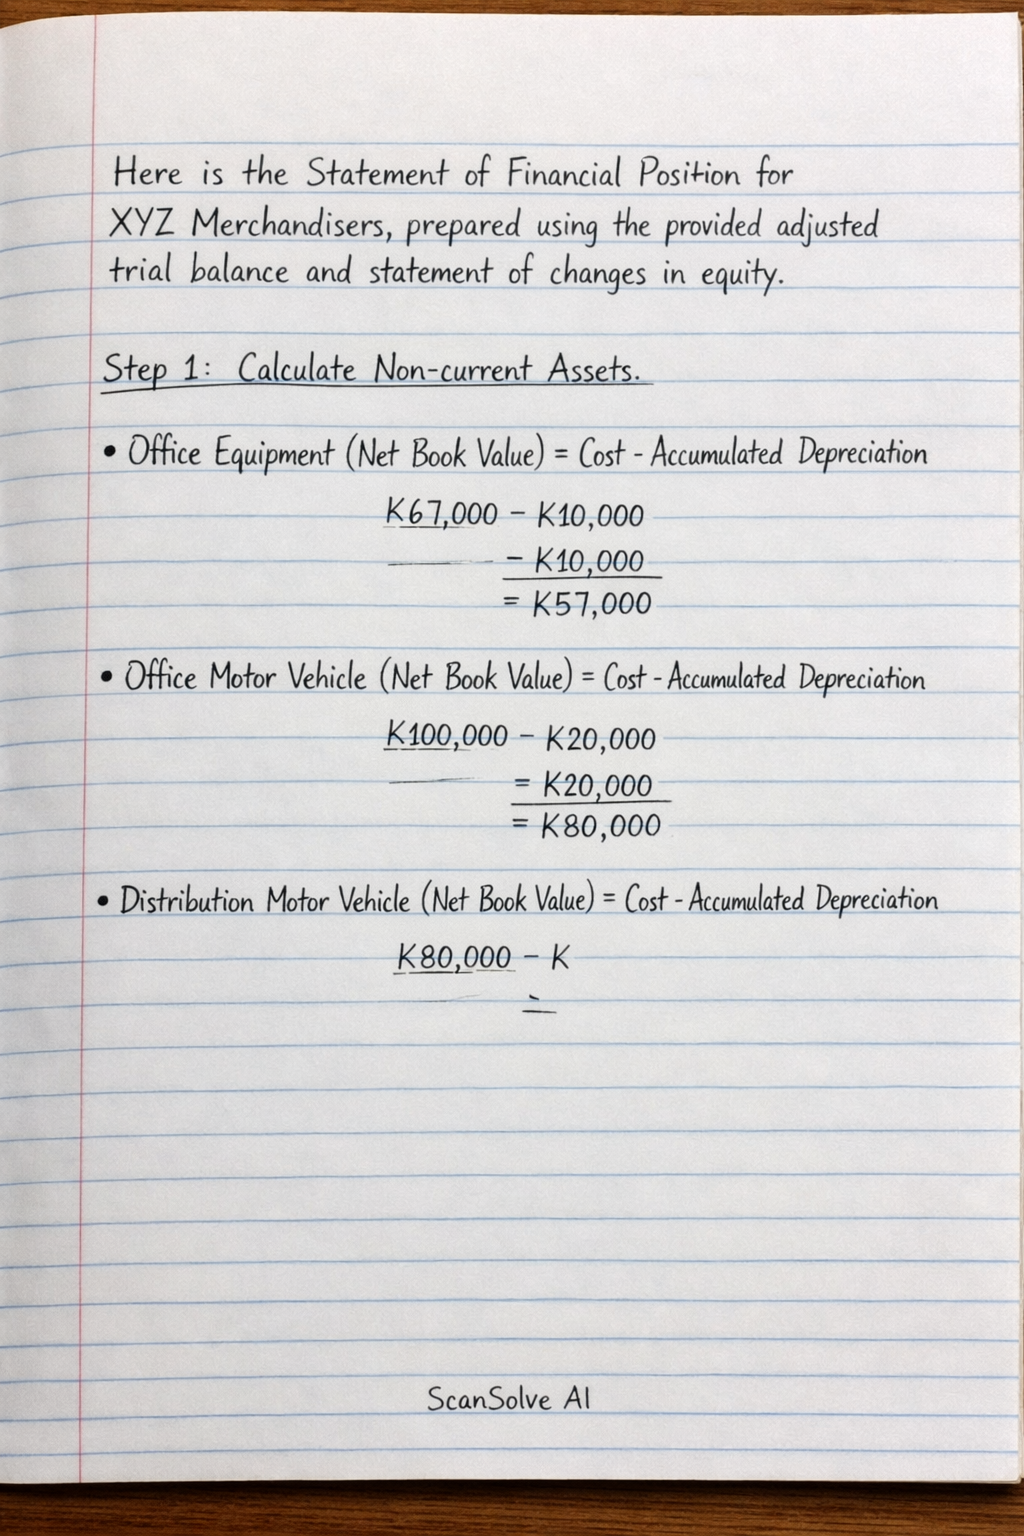 Here is the Statement of Financial Position for
XYZ Merchandisers, prepared using the provided adjusted
trial balance and statement of changes in equity.
Step 1: Calculate Non-current Assets.
• Office Equipment (Net Book Value) = Cost - Accumulated Depreciation
K67,000 - K10,000
- K10,000
= K57,000
• Office Motor Vehicle (Net Book Value) = Cost - Accumulated Depreciation
K100,000 - K20,000
= K20,000
= K80,000
• Distribution Motor Vehicle (Net Book Value) = Cost - Accumulated Depreciation
K80,000 - K
ScanSolve AI